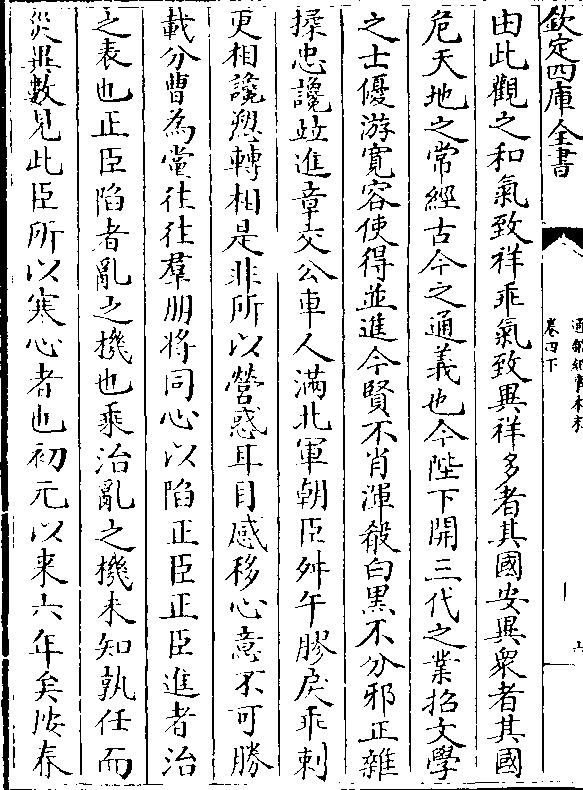 欽定四庫全書
通鑑紀事本末
卷四下
由此觀之和氣致祥乖氣致異祥多者其國安異衆者其國
危天地之常經古今之通義也今陛下開三代之業招文學
之士優游寛容使得並進今賢不肖渾殽白黒不分邪正雜
揉忠讒竝進章交公車人滿北軍朝臣舛午膠戾乖剌
更相讒愬轉相是非所以營惑耳目感移心意不可勝
載分曹為黨往往羣朋將同心以陷正臣正臣進者治
之表也正臣陷者亂之機也乗治亂之機未知孰任而
災異數見此臣所以寒心者也初元以来六年矣按春